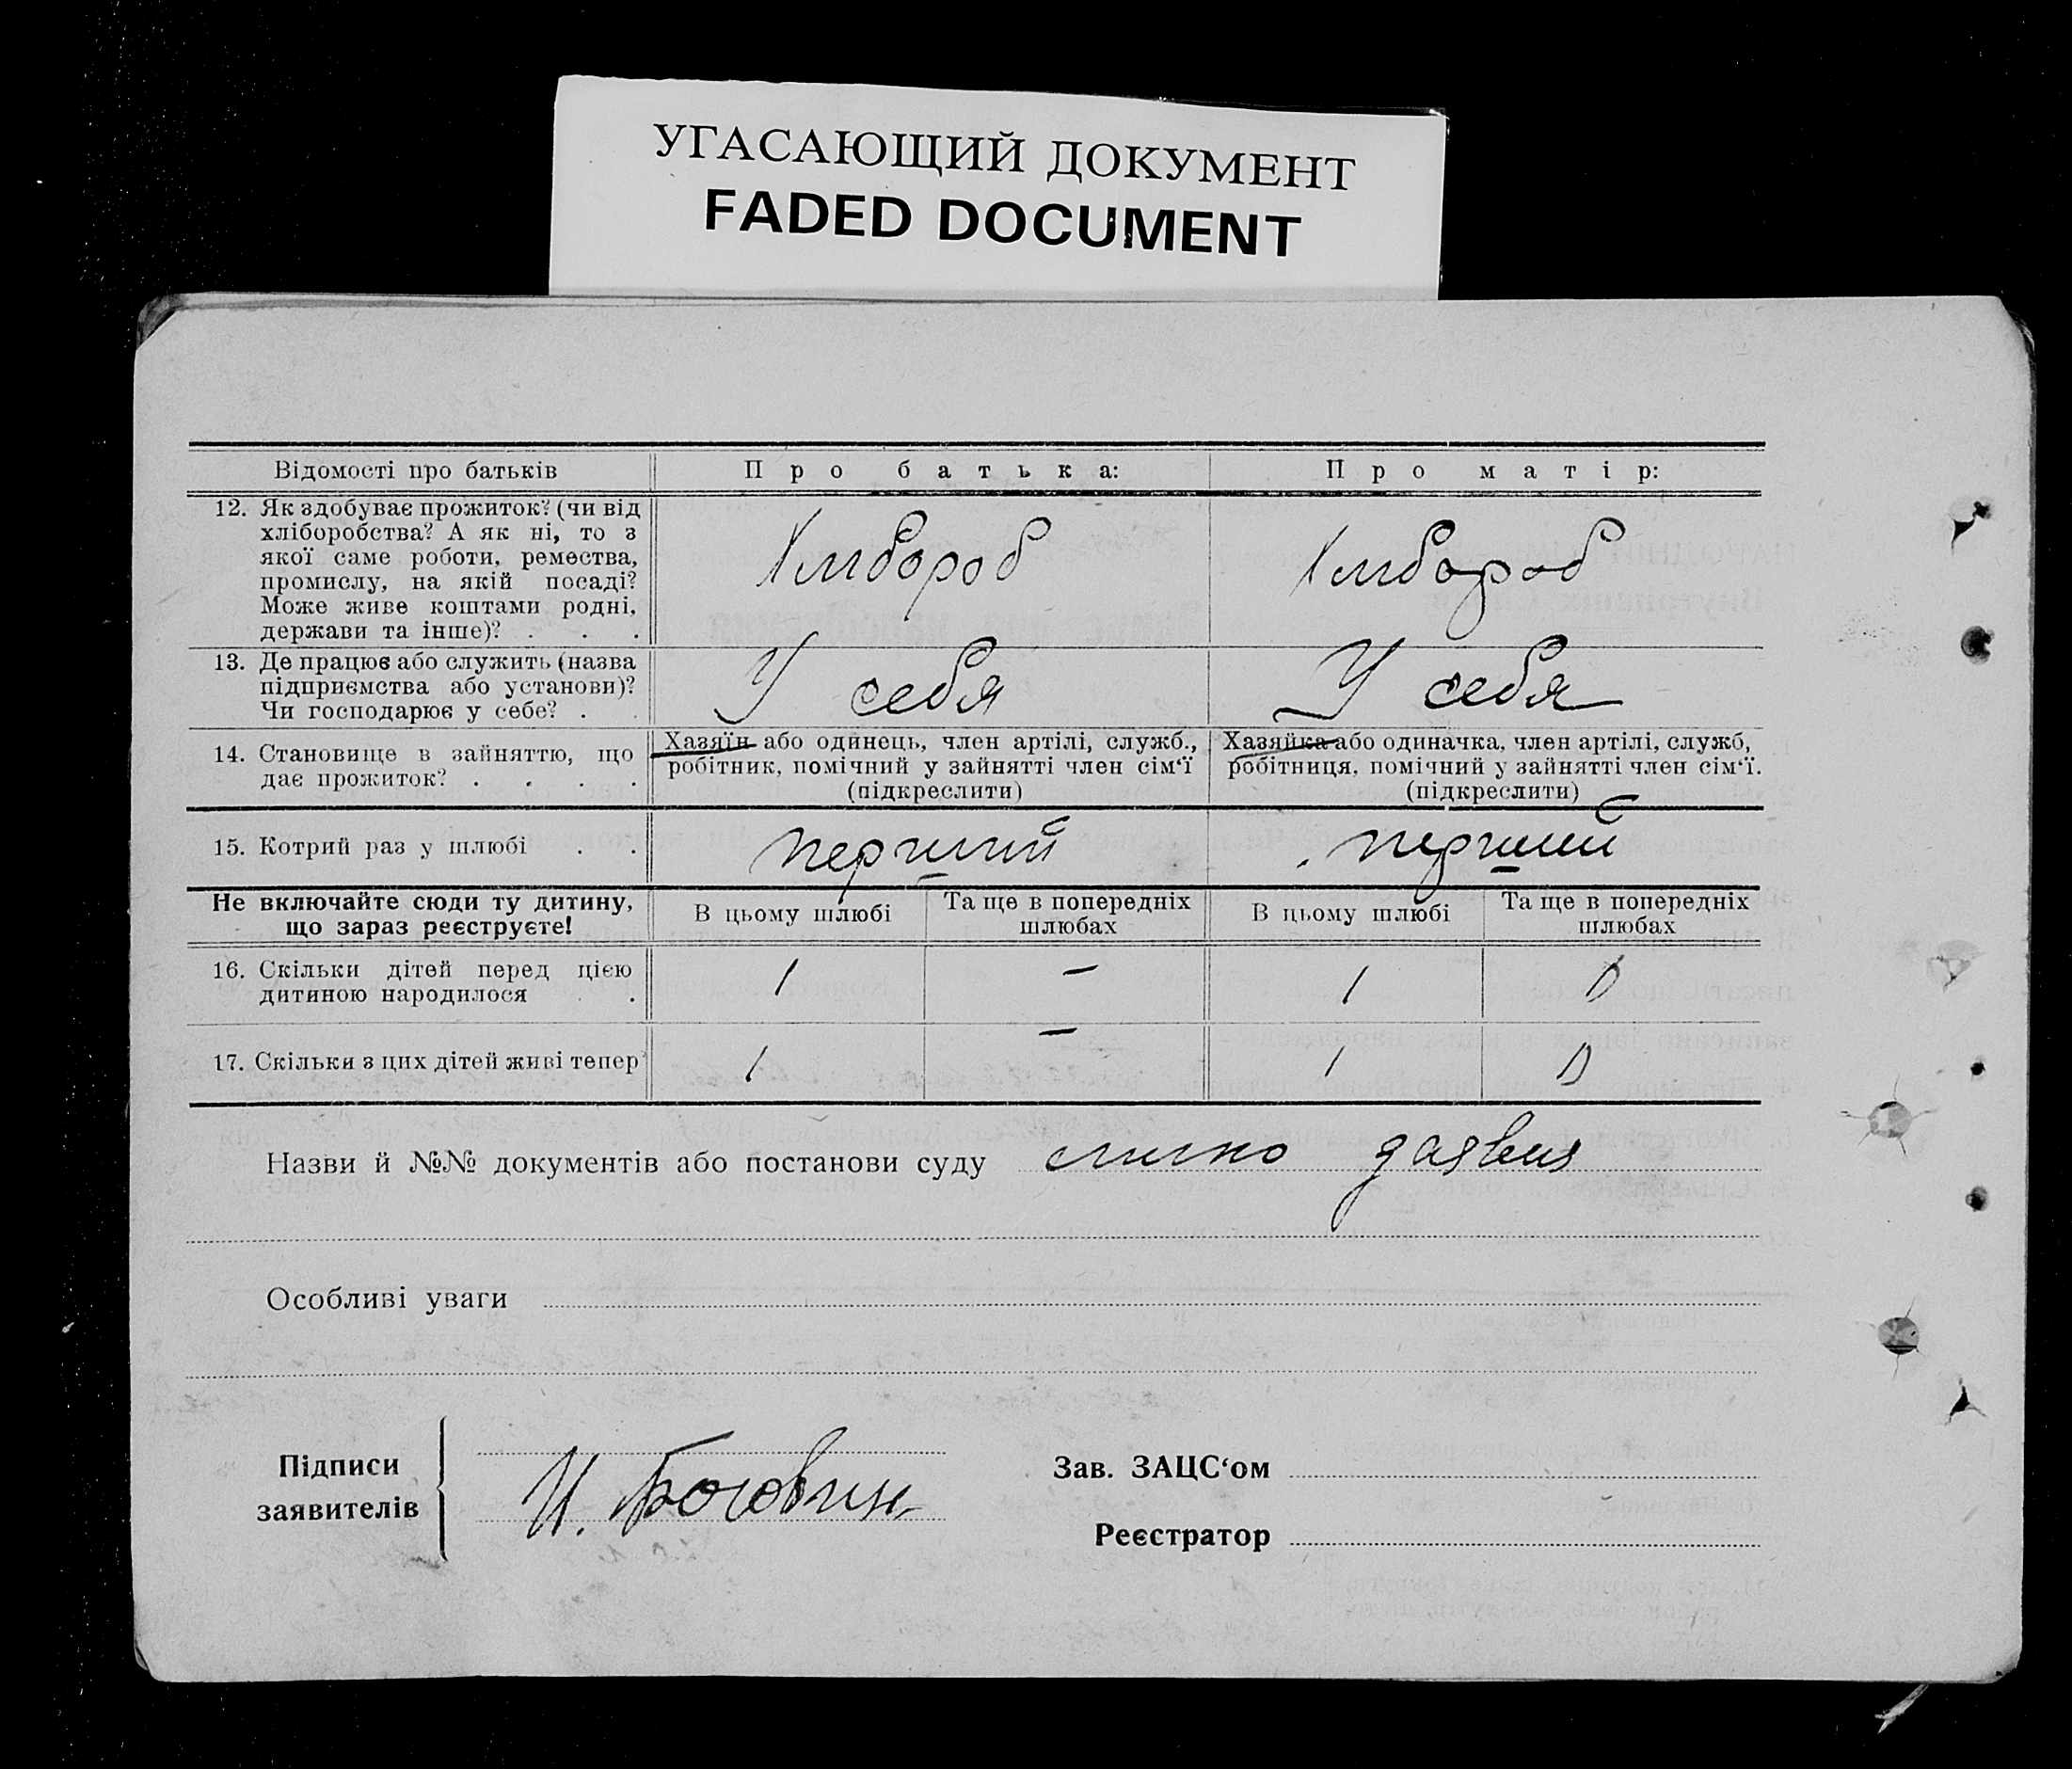 УГАСАЮЩИЙ ДОКУМЕНТ
FADED DOCUMENT
Відомості про батьків
Про батька:
Про матір:
12. Як здобуває прожиток? (чи від
хліборобства? А як ні, то з
якої саме роботи, ремества,
промислу, на якій посаді?
Може живе коштами родні,
держави та інше)? . . .
Хлібороб
Хлібороб
13. Де працює або служить (назва
підприємства або установи)?
Чи господарює у себе? . .
У себя
У себя
14. Становище в зайняттю, що
дає прожиток? . . . .
Хазяїн або одинець, член артілі, служб.,
робітник, помічний у зайнятті член сім‘ї
(підкреслити)
Хазяйка або одиначка, член артілі, служб,
робітниця, помічний у зайнятті член сім‘ї.
(підкреслити)
15. Котрий раз у шлюбі . .
перший
перший
Не включайте сюди ту дитину,
що зараз реєструєте!
В цьому шлюбі
Та ще в попередніх
шлюбах
В цьому шлюбі
Та ще в попередніх
шлюбах
16. Скільки дітей перед цією
дитиною народилося . .
1
—
1
0
17. Скільки з цих дітей живі тепер
1
—
1
0
Назви й №№ документів або постанови суду
Особливі уваги
Підписи
заявителів
И.
Зав. ЗАЦС‘ом
Реєстратор